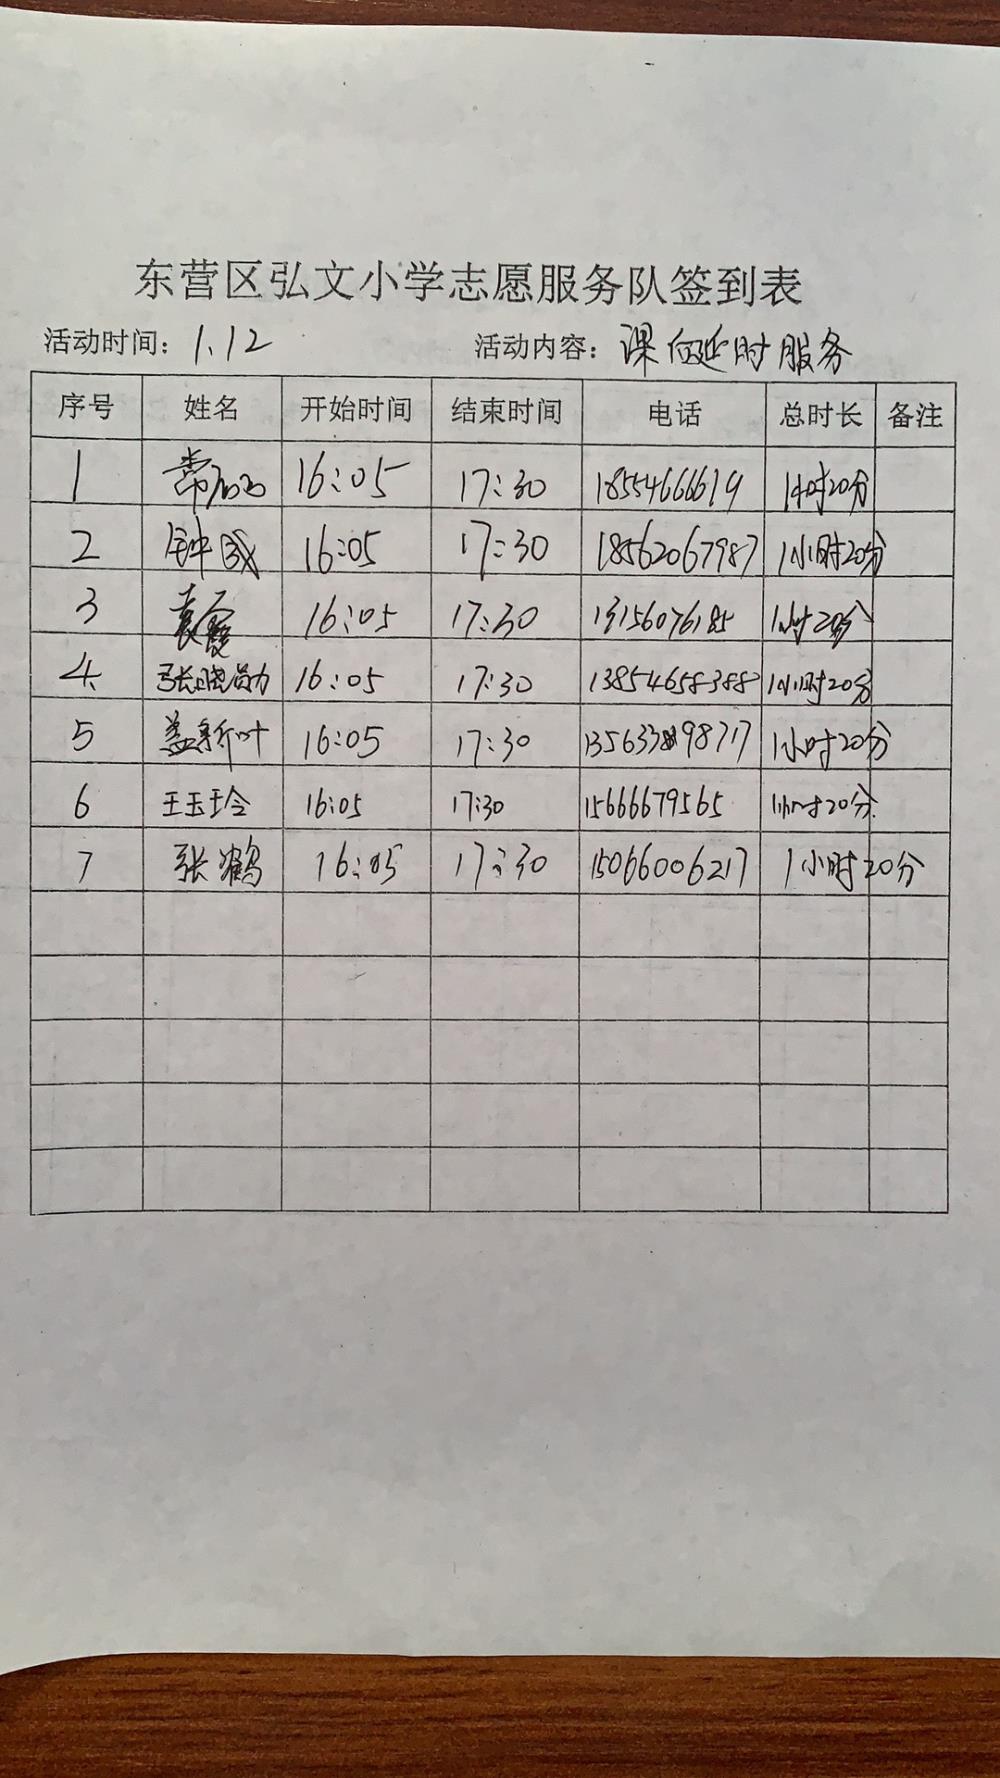 东营区弘文小学志愿服务队签到表
活动时间：1.12 活动内容：课后延时服务
序号 姓名 开始时间 结束时间 电话 总时长 备注
1 常 16:05 17:30 18554666619 1小时20分
2 钟威 16:05 17:30 18562067987 1小时20分
3 袁霞 16:05 17:30 13156076185 1小时20分
4. 张晓员力 16:05 17:30 13854658388 1小时20分
5 盖新叶 16:05 17:30 135633898717 1小时20分
6 王玉玲 16:05 17:30 15666679565 1小时20分
7 张鹤 16:05 17:30 15066006217 1小时20分